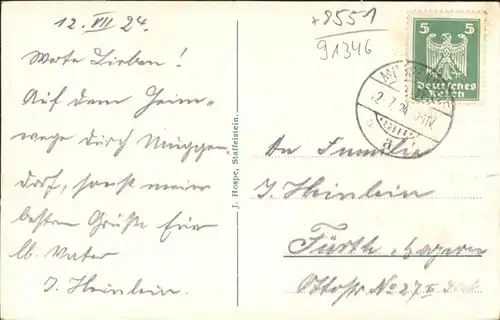 12. VII 24.
Werte Lieben!
Auf dem Heim-
wege durch Müggen-
dorf, sonst meine
besten Grüße Eur
lb. Vater
J. Heinlein.
J. Hospe, Staffelstein.
+8551
91346
5 5
Deutsches
Reich
12.7.24
An Familie
J. Heinlein
Fürth Bayern
Ottostr No 27 II